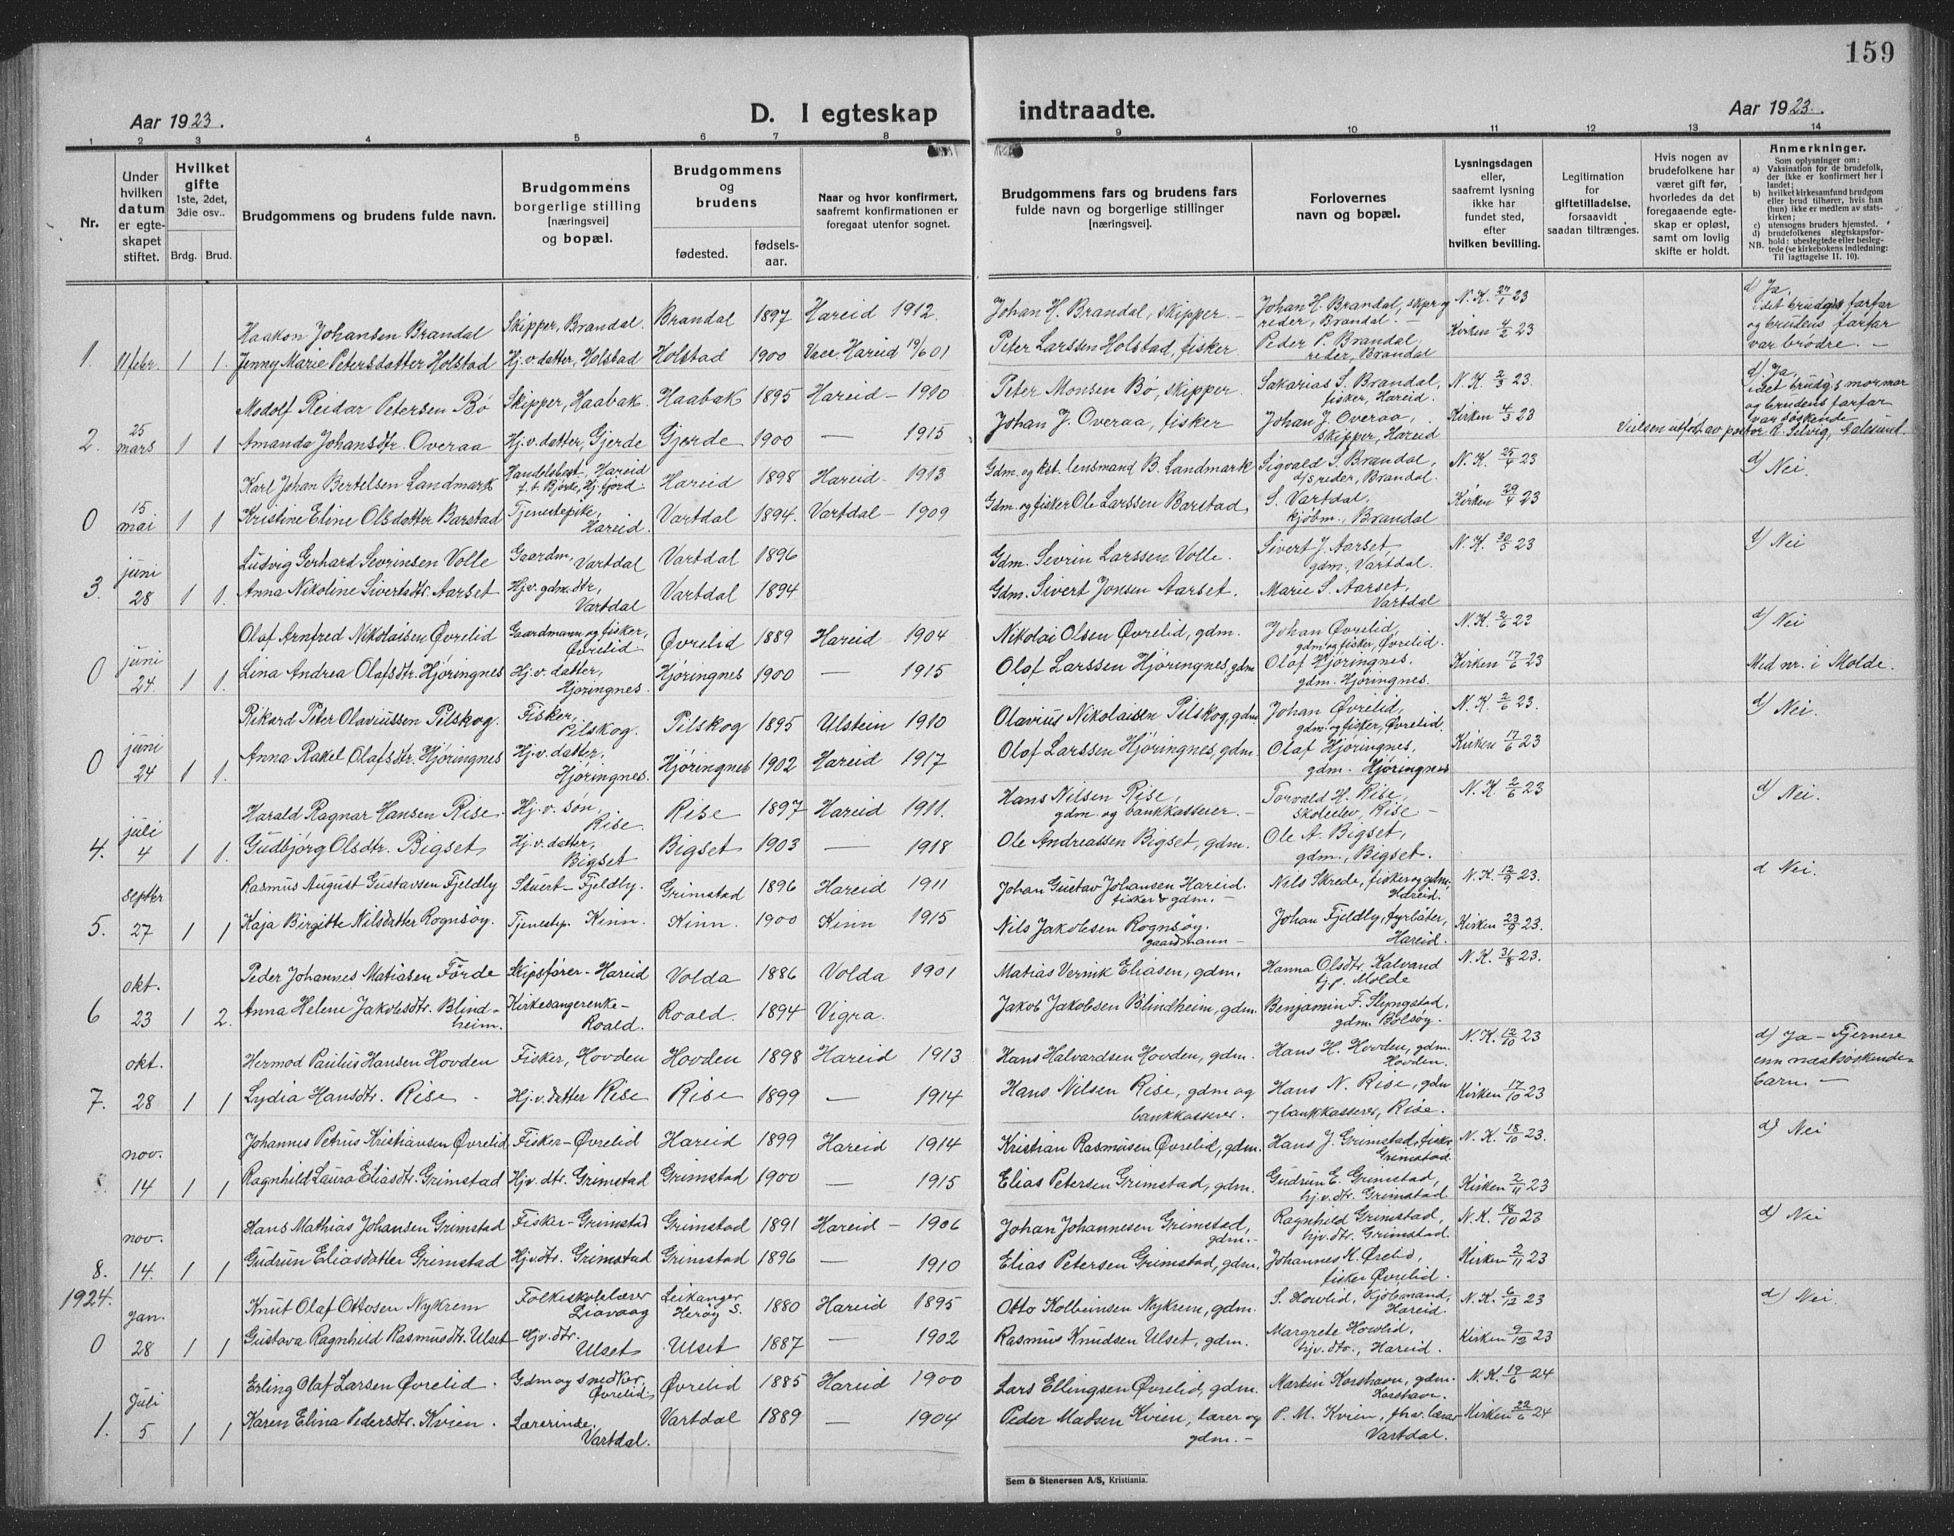 159
Aar 1923.
D. I egteskap indtraadte.
Aar 1923.
1 2 3 4 5 6 7 8 9 10 11 12 13 14
Nr.
Under hvilken datum er egte-skapet stiftet.
Hvilket gifte 1ste, 2det, 3die osv..
Brdg. Brud.
Brudgommens og brudens fulde navn.
Brudgommens borgerlige stilling [næringsvei] og bopæl.
Brudgommens og brudens
fødested. fødsels-aar.
Naar og hvor konfirmert, saafremt konfirmationen er foregaat utenfor sognet.
Brudgommens fars og brudens fars fulde navn og borgerlige stillinger [næringsvei].
Forlovernes navn og bopæl.
Lysningsdagen eller, saafremt lysning ikke har fundet sted, efter hvilken bevilling.
Legitimation for giftetilladelse, forsaavidt saadan tiltrænges.
Hvis nogen av brudefolkene har været gift før, hvorledes da det foregaaende egte-skap er opløst, samt om lovlig skifte er holdt.
Anmerkninger.
Som oplysninger om:
a) Vaksination for de brudefolk, der ikke er konfirmert her i landet;
b) hvilket kirkesamfund brudgom eller brud tilhører, hvis han (hun) ikke er medlem av stats-kirken;
c) utensogns bruders hjemsted.
d) brudefolkenes slegtskapsfor-hold: ubeslegtede eller besleg-tede (se kirkebokens indledning:
NB. Til iagttagelse 11. 10).
Haakon Johansen Brandal Skipper, Brandal. Brandal 1897 Hareid 1912. Johan H. Brandal, skipper. – Johan H. Brandal, skipr og reder, Brandal. – N. K. 27/1 23 d) Ja, idet brudgs farfar og brudens farfar var brødre. –
1. 11 febr. 1 1. Jenny Marie Petersdatter Holstad Hj. v. datter, Holstad Holstad 1900 Vacc. Hareid 19/6 01 Peter Larssen Holstad, fisker Peder P. Brandal, reder, Brandal Kirken 4/2 23
Medolf Reidar Petersen Bø Skipper, Haabak. Haabak 1895 Hareid – 1910 Peter Monsen Bø, skipper Sakarias S. Brandal, fisker, Hareid. N. K. 2/3 23. d) Ja, idet brudgs mormor og brudens farfar var søskende
2. 25 mars 1 1 Amanda Johansdtr. Overaa Hj. v. datter, Gjerde Gjerde 1900 — 1915 Johan J. Overaa, fisker Johan J. Overaa, skipper, Hareid Kirken 4/3 23 Vielsen utført av pastor Selvig, Aalesund.
Karl Johan Bertelsen Landmark Handelsbest. Hareid f. t. Bjørke, Hj.fjord Hareid 1898 Hareid – 1913 Gdm. og kst. lensmand B. Landmark Sigvald S. Brandal, d/s reder, Brandal. N. K. 25/4 23 d) Nei.
0 15 mai 1 1 Kristine Eline Olsdatter Barstad Tjenestepike, Hareid. Vartdal 1894. Vartdal – 1909 Gdm. og fisker Ole Larssen Barstad, S. Vartdal, kjøbm., Brandal Kirken 29/4 23
Ludvig Gerhard Sevrinsen Volle Gaardm, Vartdal Vartdal 1896 Gdm. Sevrin Larssen Volle. Sivert J. Aarset gdm, Vartdal. N. K. 30/5 23 d) Nei
3. juni 28 1 1. Anna Nikoline Sivertsdtr. Aarset Hj. v. gdm. dtr, Vartdal Vartdal 1894 Gdm. Sivert Jonsen Aarset. Marie S. Aarset, Vartdal
Olaf Arnfred Nikolaisen Øvrelid Gaardmann og fisker, Øvrelid Øvrelid 1889 Hareid 1904 Nikolai Olsen Øvrelid, gdm. Johan Øvrelid, gdm og fisker, Øvrelid. N. K. 2/6 23 d) Nei
0 juni 24 1 1. Lina Andrea Olafsdtr. Hjøringnes Hj. v. datter, Hjøringnes. Hjøringnes 1900 — 1915 Olaf Larssen Hjøringnes, gdm Olaf Hjøringnes, gdm. Hjøringnes. Kirken 17/6 23 Med nr. i Molde.
Rikard Peter Olaviussen Pilskog. Fisker, Pilskog. Pilskog 1895 Ulstein 1910 Olavius Nikolaisen Pilskog, gdm Johan Øvrelid, gdm. og fisker, Øvrelid. N. K. 2/6 23. d) Nei.
0 juni 24 1 1. Anna Rakel Olafsdtr. Hjøringnes Hj. v. datter, Hjøringnes. Hjøringnes 1902 Hareid 1917 Olaf Larssen Hjøringnes, gdm. Olaf Hjøringnes, gdm. Hjøringnes Kirken 17/6 23
Harald Ragnar Hansen Rise. Hj. v. søn, Rise. Rise 1897 Hareid 1911. Hans Nilsen Rise, gdm og bankkasserer. – Torvald H. Rise, skoleelev, Rise – N. K. 2/6 23 d) Nei.
4. juli 4 1 1. Gudbjørg Olsdtr. Bigset Hj. v. datter, Bigset Bigset 1903 — 1918 Ole Andreassen Bigset, gdm. Ole A. Bigset, gdm., Bigset.
Rasmus August Gustavsen Fjeldly Stuert – Fjeldly. Grimstad 1896 Hareid 1911 Johan Gustav Johansen Hareid. fisker & gdm. – Nils Skrede, fisker og gdm, Hareid. N. K. 12/9 23. d Nei.
5. septbr 27 1 1 Kaja Birgitte Nilsdatter Rognsøy. Tjenestep. Kinn. Kinn. 1900 Kinn 1915 Nils Jakobsen Rognsøy. gaardmann – Johan Fjeldly, fyrbøter, Hareid. Kirken 23/9 23.
Peder Johannes Matiasen Førde Skipsfører – Hareid Volda 1886 Volda 1901 Matias Vernik Eliasen, gdm. Hanna Olsdtr. Kalvand tj.p. Molde N. K. 31/8 23.
6 okt. 23 1 2. Anna Helene Jakobsdtr. Blind-heim. Kirkesangerenke – Roald. Roald. 1894 Vigra. Jakob Jakobsen Blindheim, gdm. Benjamin F. Slyngstad, gdm. Bolsøy.
Hermod Paulus Hansen Hovden Fisker, Hovden Hovden 1898 Hareid 1913 Hans Halvardsen Hovden, gdm. Hans H. Hovden, gdm. Hovden. N. K. 12/10 23 d) Ja – Fjernere enn næstsøskende-barn. –
7. okt. 28 1 1 Lydia Hansdtr. Rise Hj. v. datter Rise Rise 1899 — 1914 Hans Nilsen Rise, gdm og bankkasserer. Hans N. Rise, gdm og bankkasserer, Rise. Kirken 17/10 23
Johannes Petrus Kristiansen Øvrelid Fisker – Øvrelid Hareid 1899 Hareid 1914 Kristian Rasmussen Øvrelid, gdm. Hans J. Grimstad, fisker Grimstad N. K. 18/10 23. d) Nei
nov. 14 1 1 Ragnhild Laura Eliasdtr. Grimstad Hj. v. dtr. Grimstad Grimstad 1900 — 1915 Elias Petersen Grimstad, gdm. Gudrun E. Grimstad, hj. v. dtr. Grimstad Kirken 2/11 23
Hans Mathias Johansen Grimstad Fisker – Grimstad Grimstad 1891 Hareid – 1906 Johan Johannesen Grimstad, gdm. – Ragnhild Grimstad, hj. v. dtr. Grimstad N. K. 18/10 23 d) Nei
8. nov. 14. 1 1 Gudrun Eliasdatter Grimstad Hj. v. dtr. Grimstad Grimstad 1896 — 1910 Elias Petersen Grimstad, gdm. Johannes K. Ørelid, fisker Øvrelid. Kirken 2/11 23
1924.
Knut Olaf Ottosen Nykrem Folkeskolelærer Liavaag Leikanger Herøy S. 1880 Hareid 1895 Otto Kolbeinsen Nykrem, gdm. S. Howlid, Kjøbmand, Hareid N. K. 6/12 23 d) Nei
0 Jan. 28 1 1 Gustava Ragnhild Rasmusdtr. Ulset Hj. v. dtr. Ulset Ulset 1887 — 1902 Rasmus Knudsen Ulset, gdm. Margrete Howlid, hj. v. dtr., Hareid. Kirken 9/12 23
Erling Olaf Larsen Øvrelid. Gdm og snedker, Øvrelid Øvrelid 1885 Hareid 1900 Lars Ellingsen Øvrelid, gdm. Martin Korshavn, gdm. Korshavn. N. K. 19/6 24
1. Juli 5 1 1 Karen Elina Pedersdtr. Kvien. Lærerinde, Vartdal. Vartdal 1889 — 1904 Peder Madsen Kvien, lærer og gdm. – P. M. Kvien, fhv. lærer Vartdal. Kirken 22/6 24
Sem & Stenersen A/S, Kristiania.